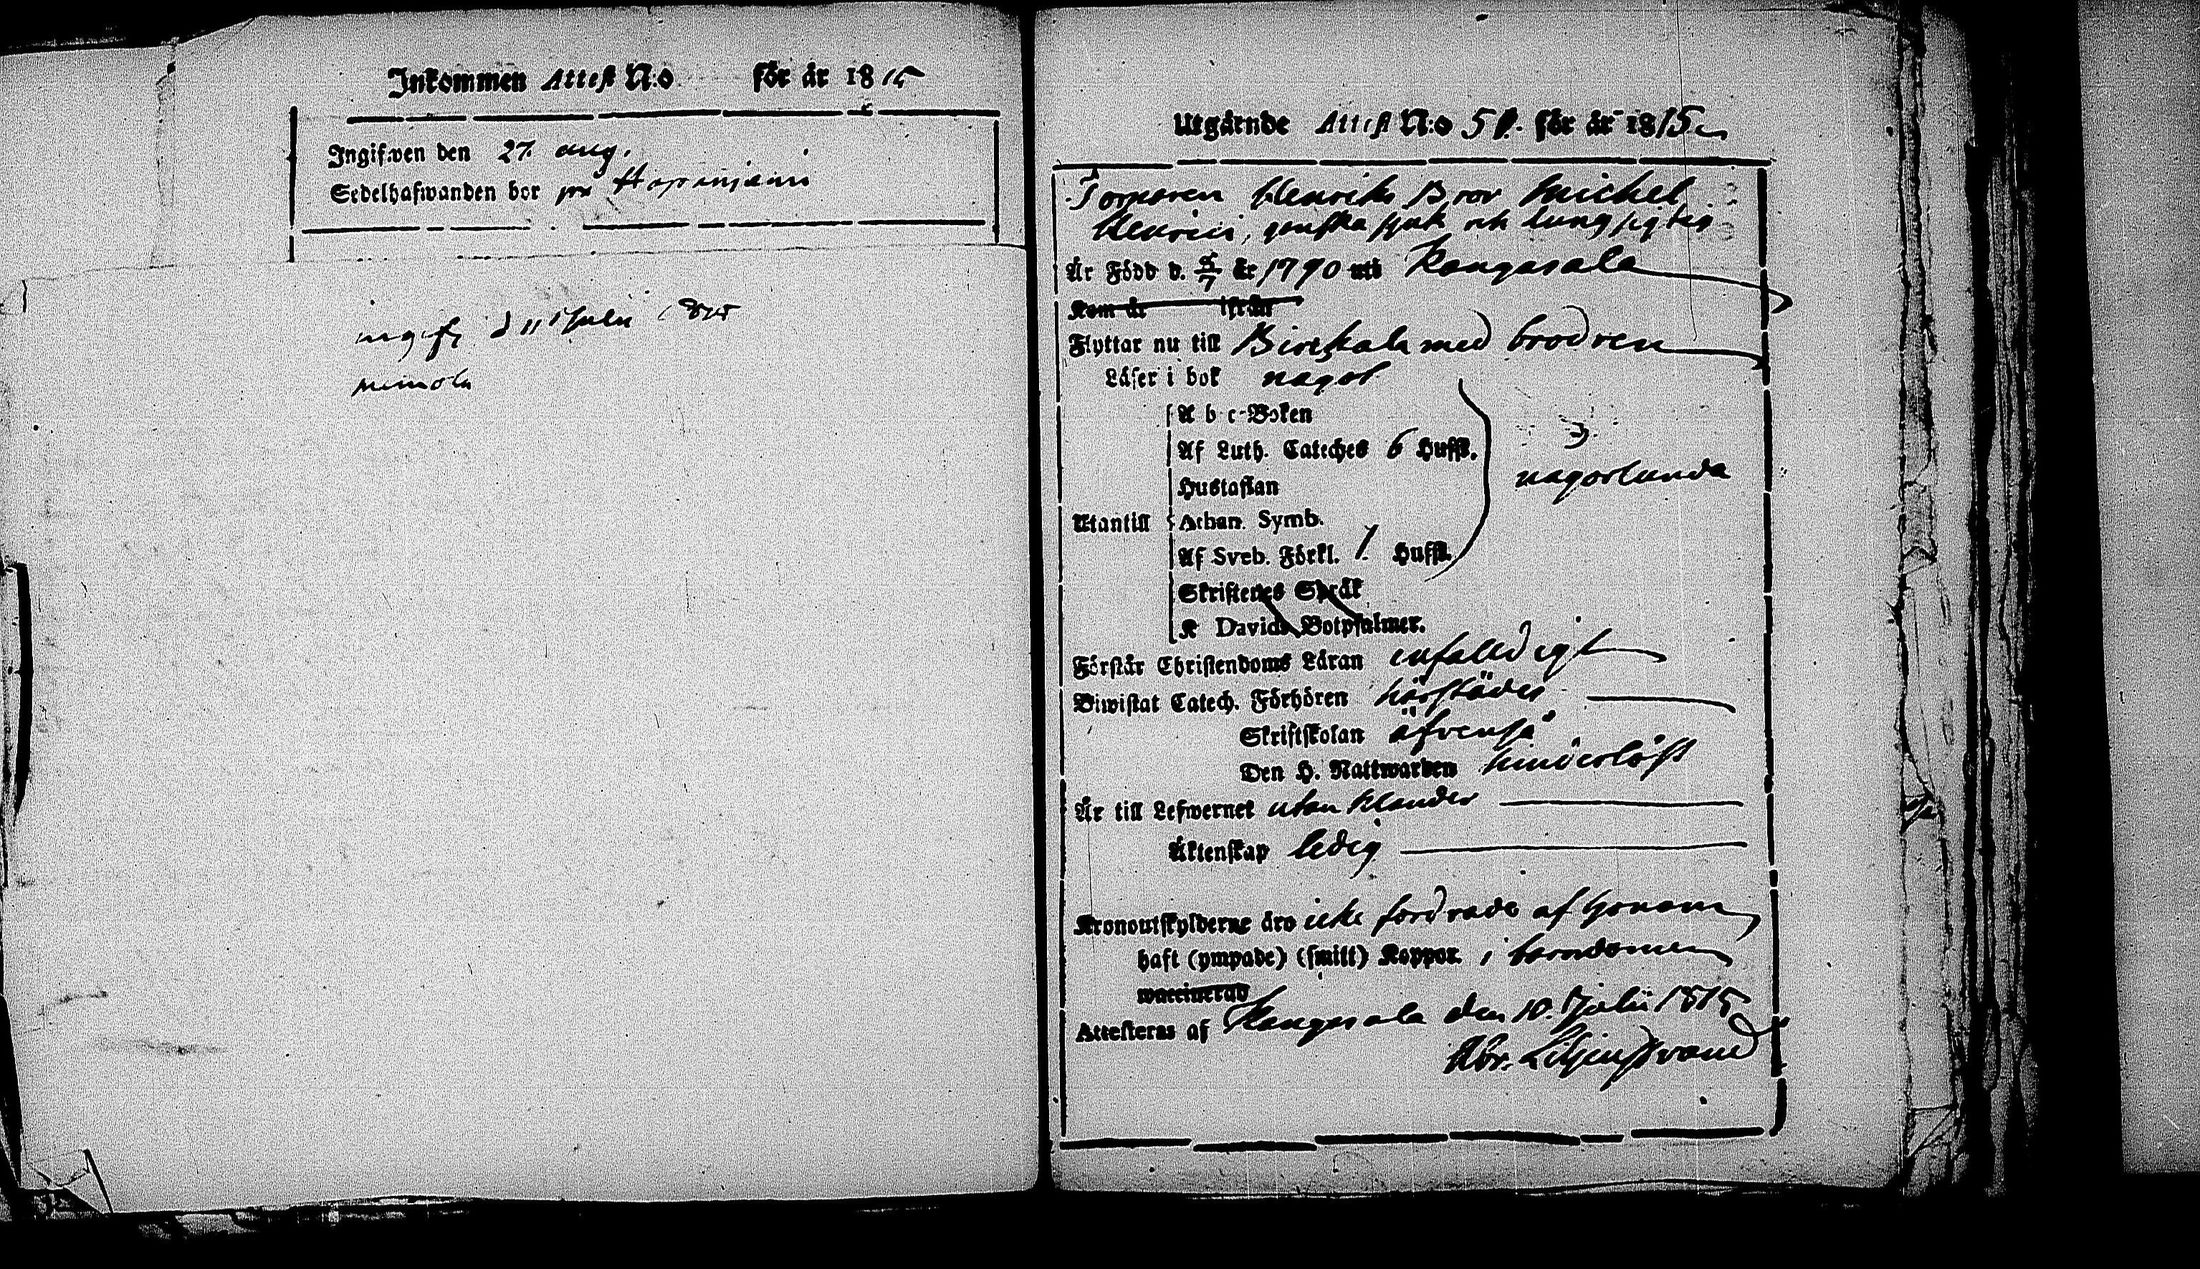 Inkommen Attest N:o för år 1815
Ingifwen den 27. aug.
Sedelhafwanden bor på Hapaniemi
ingif. d 11 Julii 1815
Utgående Attest N:o 58. för år 1815
Torparen Henriks Bror Michel
Henrici, ganska sjuk och lungsigtig
Är Född d. 5/7 år 1790 uti Kangasala
Kom år ifrån
Flyttar nu till Birkkala med brodren
Läser i bok någol
A b c-Boken
Af Luth. Cateches 6 Hufst.
någorlunda
Hustaflan
Utantill Athan. Symb.
Af Sveb. Förkl. 1. Hufst.
Skriftenes Språk
K Davids Botpsalmer.
Förstår Christendoms Läran enfalldigt
Biwistat Catech. Förhören härstädes
Skriftskolan äfvenså
Den H. Nattwarden hinderlöst
Är till Lefwernet utan klander
Äktenskap ledig
Kronoutskylderne äro icke fordrade af honom
haft (ympade) (smitt) Koppor. i barndomen
waccinerad
Attesteras af Kangasala den 10. Julii 1815
Abr. Liljenstrand